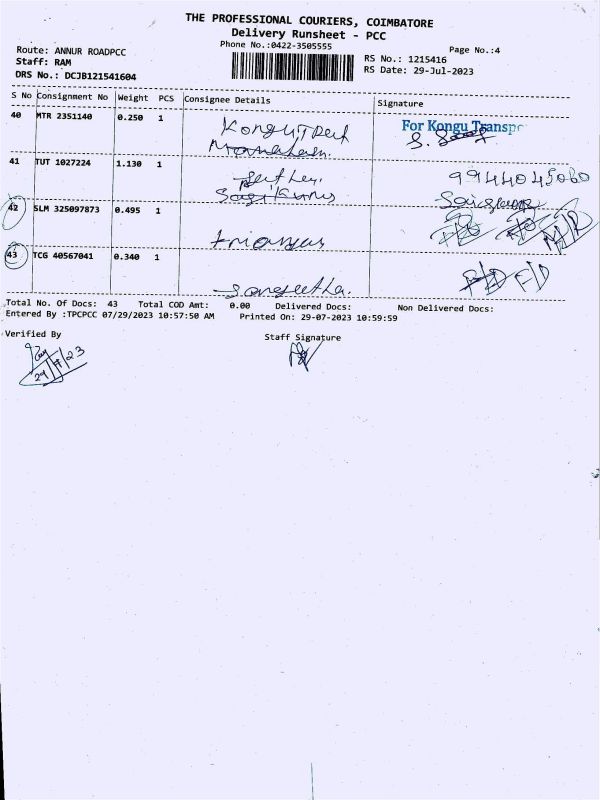 THE PROFESSIONAL COURIERS, COIMBATORE
Delivery Runsheet - PCC
Phone No.:0422-3505555
Page No.:4
Route: ANNUR ROADPCC
Staff: RAM
DRS No.: DCJB121541604
RS No.: 1215416
RS Date: 29-Jul-2023
S No Consignment No Weight PCS Consignee Details Signature
40 MTR 2351140 0.250 1
For Kongu Transpo
41 TUT 1027224 1.130 1
9944045060
42 SLM 325097873 0.495 1
43 TCG 40567041 0.340 1
Sangeetha.
Total No. Of Docs: 43 Total COD Amt: 0.00 Delivered Docs: Non Delivered Docs:
Entered By :TPCPCC 07/29/2023 10:57:50 AM Printed On: 29-07-2023 10:59:59
Verified By
Staff Signature
29/7/23